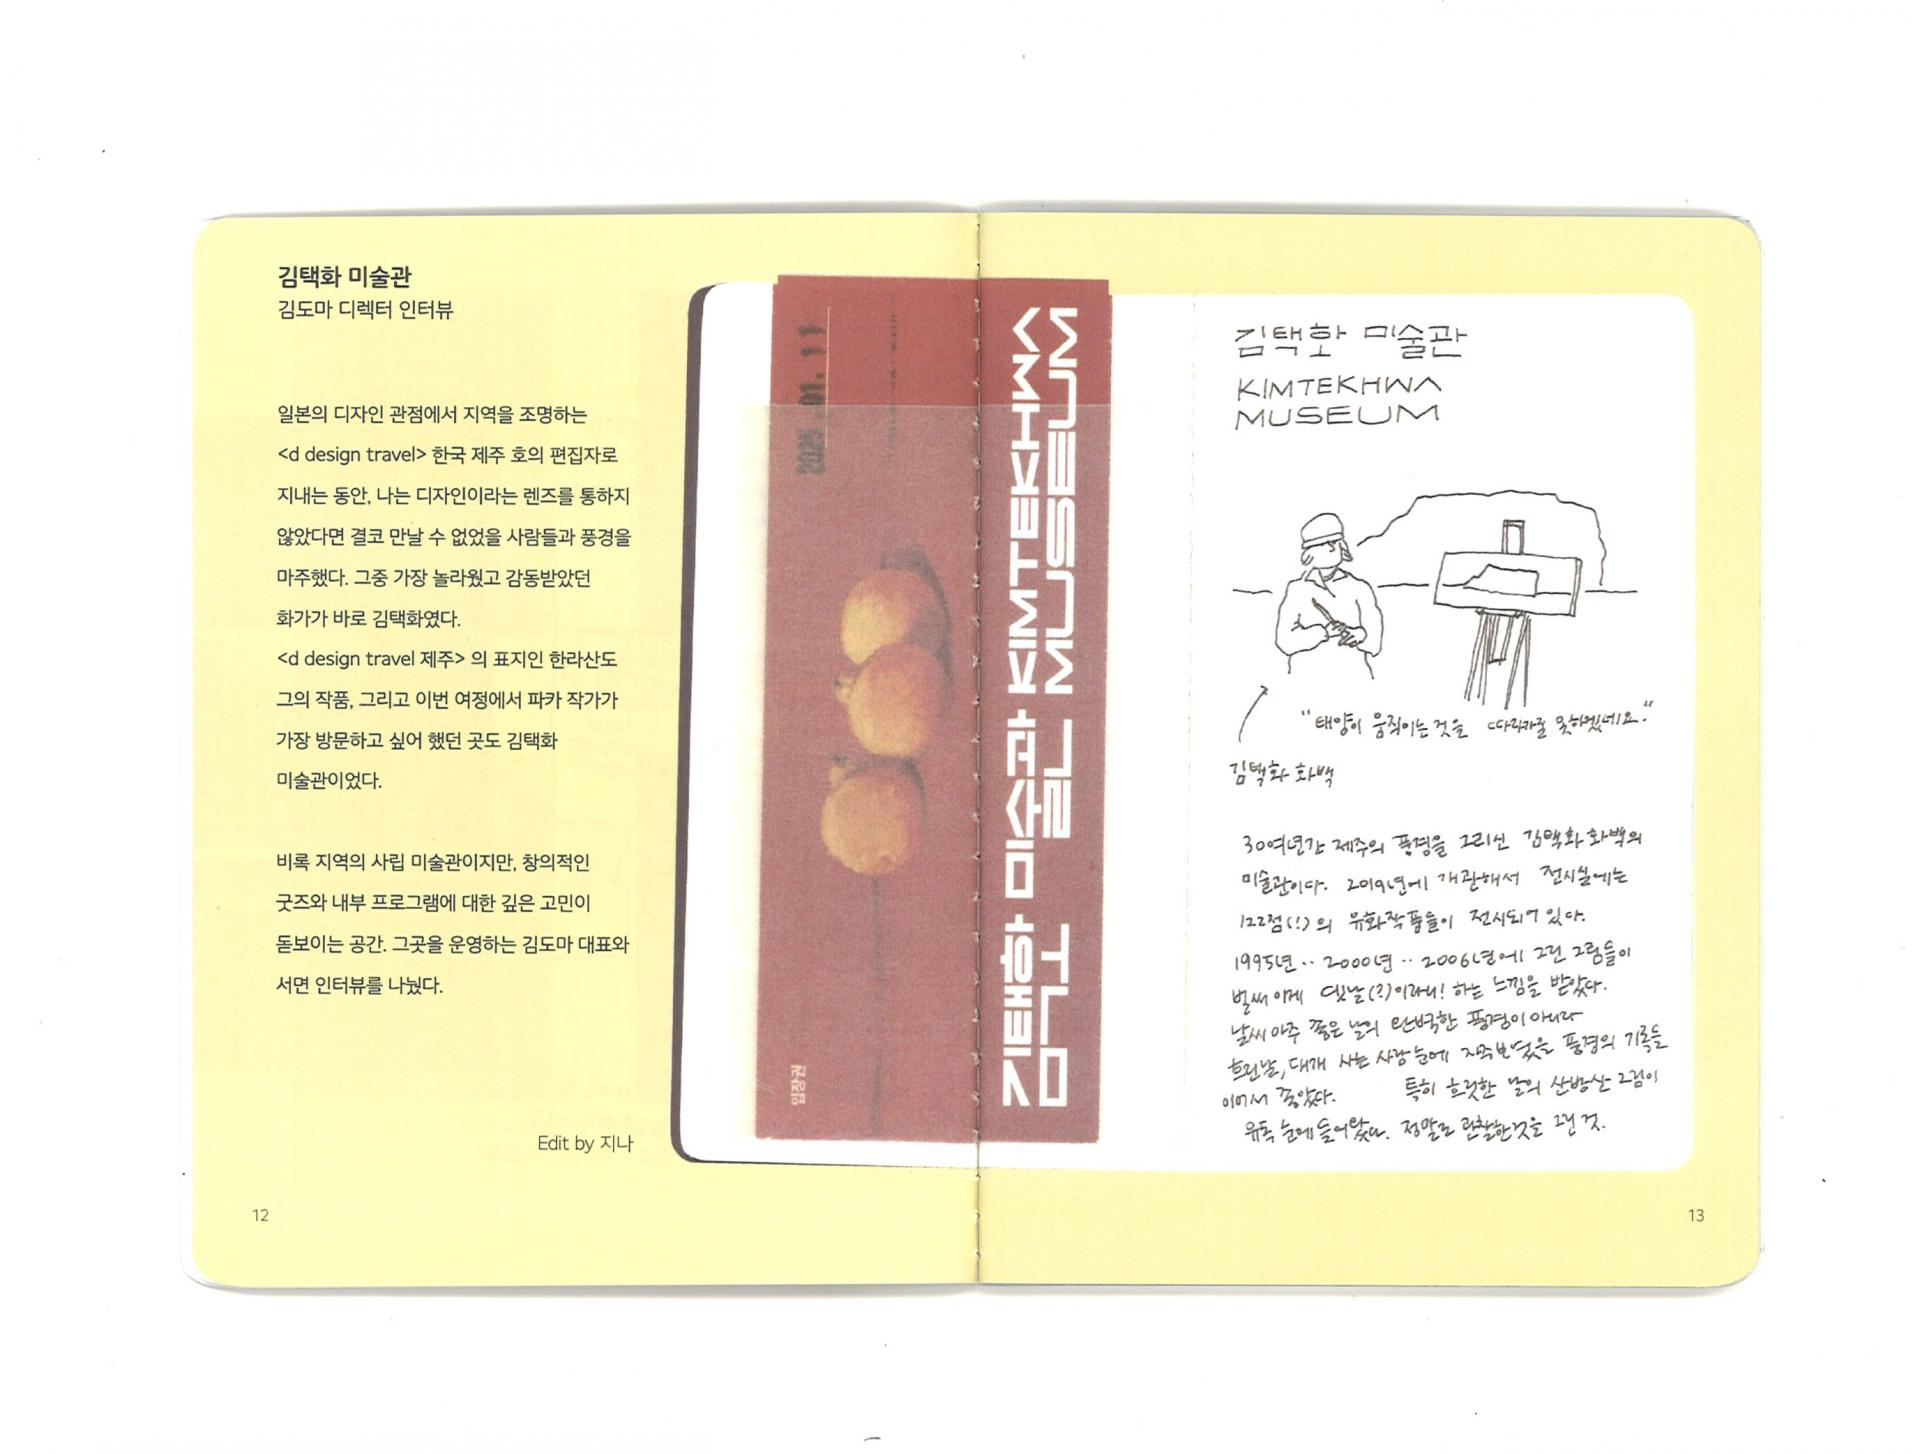 김택화 미술관
김도마 디렉터 인터뷰
일본의 디자인 관점에서 지역을 조명하는
<d design travel> 한국 제주 호의 편집자로
지내는 동안, 나는 디자인이라는 렌즈를 통하지
않았다면 결코 만날 수 없었을 사람들과 풍경을
마주했다. 그중 가장 놀라웠고 감동받았던
화가가 바로 김택화였다.
<d design travel 제주> 의 표지인 한라산도
그의 작품, 그리고 이번 여정에서 파카 작가가
가장 방문하고 싶어 했던 곳도 김택화
미술관이었다.
비록 지역의 사립 미술관이지만, 창의적인
굿즈와 내부 프로그램에 대한 깊은 고민이
돋보이는 공간. 그곳을 운영하는 김도마 대표와
서면 인터뷰를 나눴다.
Edit by 지나
12
2025.01.11
입장권
김택화 미술관 KIMTEKHWA
MUSEUM
김택화 미술관
KIMTEKHWA
MUSEUM
"태양이 움직이는 것을 따라가질 못하겠네요."
김택화 화백
30여년간 제주의 풍경을 그리신 김택화 화백의
미술관이다. 2019년에 개관해서 전시실에는
122점(!)의 유화작품들이 전시되어 있다.
1995년.. 2000년.. 2006년에 그린 그림들이
벌써 이게 옛날(?)이라니! 하는 느낌을 받았다.
날씨 아주 좋은 날의 완벽한 풍경이 아니라
흐린날, 대개 사는 사람 눈에 자주 보였을 풍경의 기록들
이어서 좋았다. 특히 흐릿한 날의 산방산 그림이
유독 눈에 들어왔다. 정말로 관찰한것을 그린 것.
13